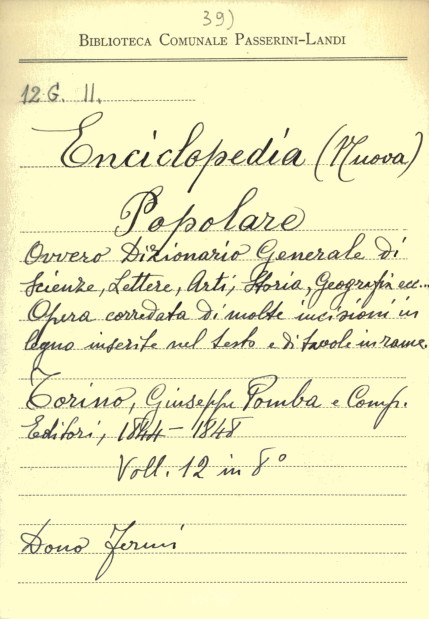 39)
BIBLIOTECA COMUNALE PASSERINI-LANDI
12 G. II.
Enciclopedia (Nuova)
Popolare
Ovvero Dizionario Generale di
Scienze, Lettere, Arti, Storia, Geografia ecc...
Opera corredata di molte incisioni in
legno inserite nel testo e di tavole in rame.
Torino, Giuseppe Pomba e Comp.
Editori, 1844-1848
Voll. 12 in 8°
Dono